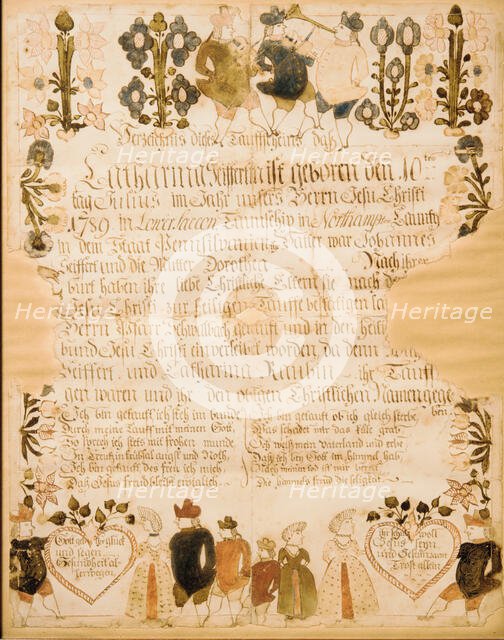 Verzeichnis dieses Taufscheins daß
Catharina Seiffert ist geboren den 10ten
tag Julius im Jahr unsers Herrn Jesu Christi
1789 in Lower Saccon Taunschip in Northamp Caunty
in dem Staat Pennsilvani Vatter war Johannes
Seiffert und die Mutter Dorothe Nach ihrer
burt haben ihre liebe Christliche Eltern sie nach de
Jesu Christ zur heiligen Tauffe
Herrn Pfarr Schwalbach getauft und in den heili
bund Jesu Christi einverleibt worden da denn
Seiffert und Catharina Raubin ihr Tauff
gen waren und ihr den obigen Christlichen Namen gege
ben
Ich bin getauft ich steh im bunde
Durch meine Tauff mit meinem Gott,
So sprech ich stets mit frohen munde
In Creutz in trübsal angst und Noth
Ich bin getauft des freu ich mich
Daß Jesus freud bleibt ewiglich
Ich bin getauft ob ich gleich sterbe
Was schadet mir das kühle grab
Ich weiß mein Vatterland und erbe
Daß ich bey Gott im himmel hab
Nach meinem tod ist mir bereit
Die himmels freud die seligkeit
Gott geb dir glück
und segen
Gesundheit al
lerwegen
Ihr soll
Jesus seyn
und Gesund
Trost allein
Heritage
Heritage
Heritage
Heritage
Heritage
Heritage
Heritage
Heritage
C